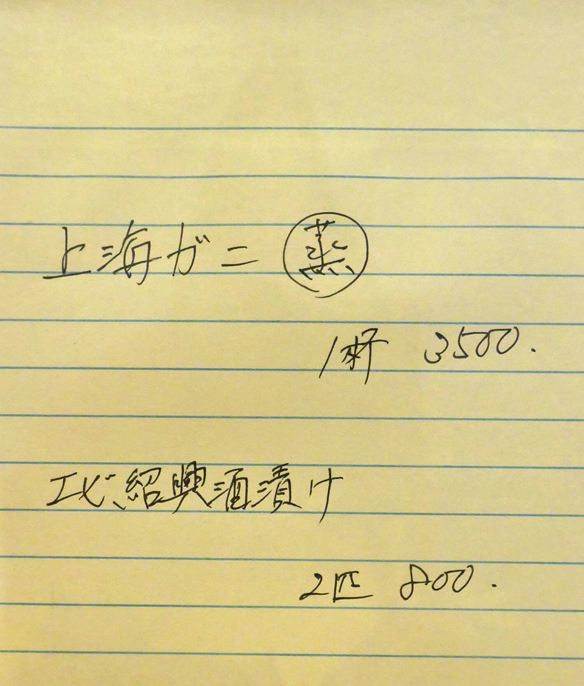 上海ガニ 蒸
1杯 3500.
エビ紹興酒漬け
2匹 800.